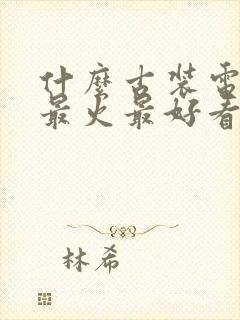 什麼古裝電
最火最好看
林希